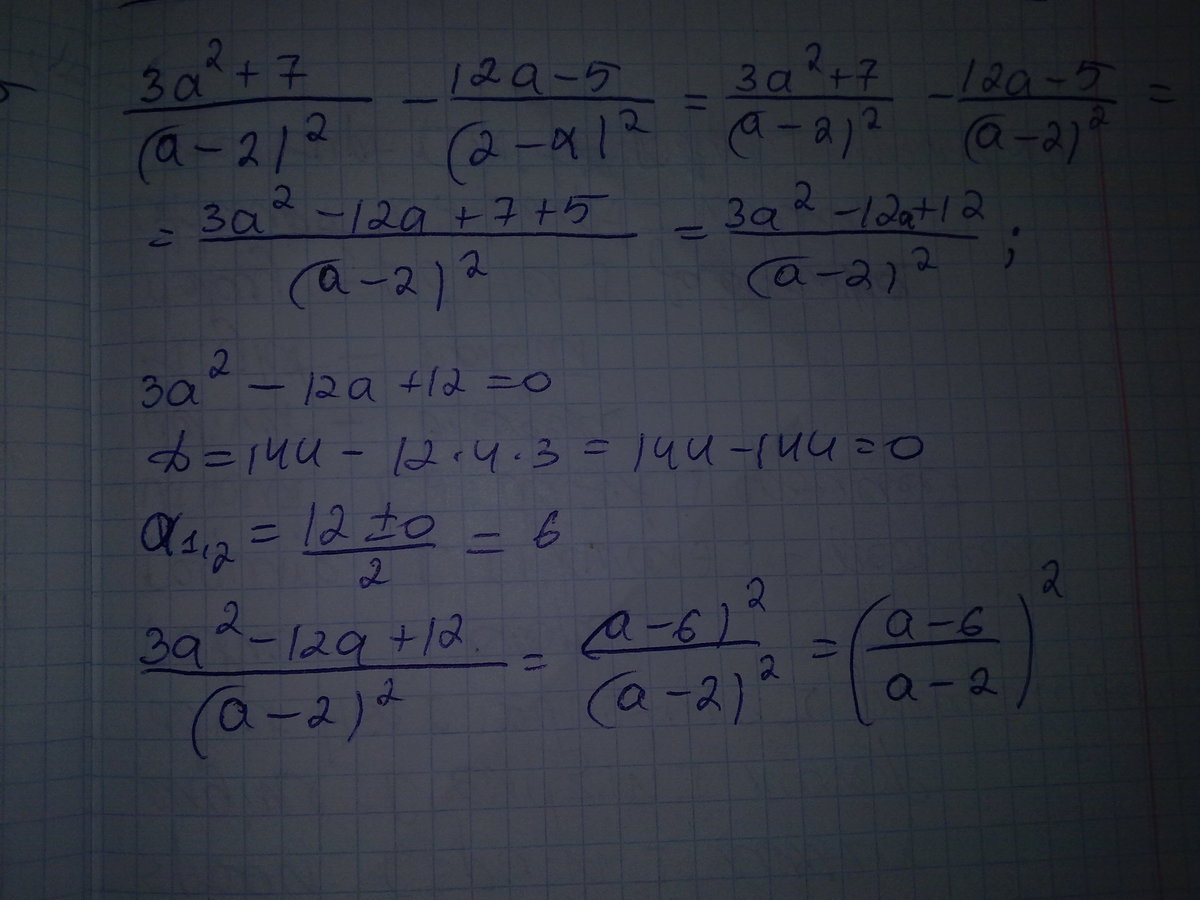 (3a² + 7)/(a - 2)² - (12a - 5)/(2 - a)² = (3a² + 7)/(a - 2)² - (12a - 5)/(a - 2)² =
= (3a² - 12a + 7 + 5)/(a - 2)² = (3a² - 12a + 12)/(a - 2)² ;
3a² - 12a + 12 = 0
D = 144 - 12 · 4 · 3 = 144 - 144 = 0
a₁,₂ = (12 ± 0)/2 = 6
(3a² - 12a + 12)/(a - 2)² = (a - 6)²/(a - 2)² = ((a - 6)/(a - 2))²